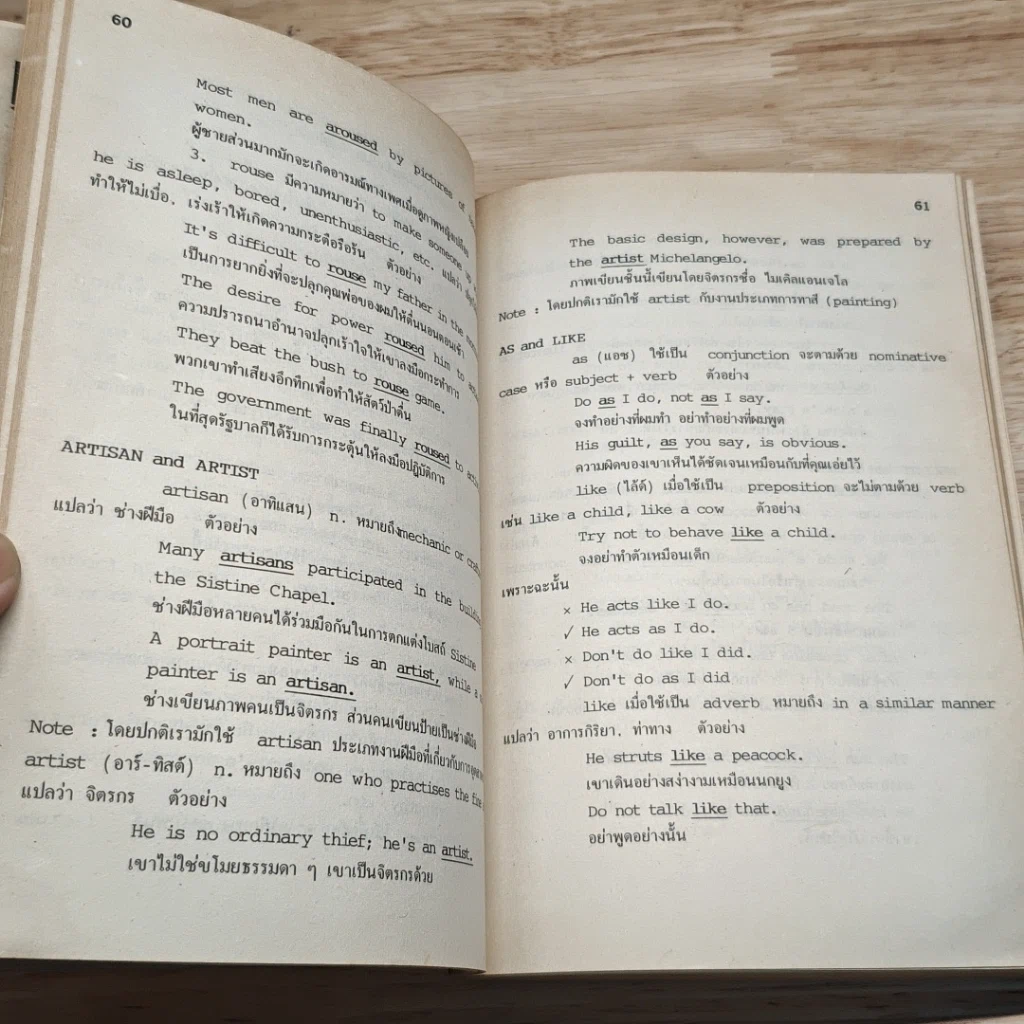 60
Most men are aroused by pictures of
women.
ผู้ชายส่วนมากมักจะเกิดอารมณ์ทางเพศเมื่อดูภาพ
3. rouse มีความหมายว่า to make someone up
he is asleep, bored, unenthusiastic, etc. แปลว่า
ทำให้ไม่เบื่อ. เร่งเร้าให้เกิดความกระตือรือร้น ตัวอย่าง
It's difficult to rouse my father in the
เป็นการยากยิ่งที่จะปลุกคุณพ่อของผมให้ตื่นนอนตอนเช้า
The desire for power roused him to
ความปรารถนาอำนาจปลุกเร้าใจให้เขาลงมือกระทำการ
They beat the bush to rouse game.
พวกเขาทำเสียงอึกทึกเพื่อทำให้สัตว์ป่าตื่น
The government was finally roused to
ในที่สุดรัฐบาลก็ได้รับการกระตุ้นให้ลงมือปฏิบัติการ
ARTISAN and ARTIST
artisan (อาทิแสน) n. หมายถึงmechanic or
แปลว่า ช่างฝีมือ ตัวอย่าง
Many artisans participated in the
the Sistine Chapel.
ช่างฝีมือหลายคนได้ร่วมมือกันในการตกแต่งโบสถ์ Sistine
A portrait painter is an artist, while a
painter is an artisan.
ช่างเขียนภาพคนเป็นจิตรกร ส่วนคนเขียนป้ายเป็นช่างฝีมือ
Note : โดยปกติเรามักใช้ artisan ประเภทงานฝีมือที่เกี่ยวกับการ
artist (อาร์-ทิสต์) n. หมายถึง one who practises the
แปลว่า จิตรกร ตัวอย่าง
He is no ordinary thief; he's an artist.
เขาไม่ใช่ขโมยธรรมดา ๆ เขาเป็นจิตรกรด้วย
61
The basic design, however, was prepared by
the artist Michelangelo.
ภาพเขียนชิ้นนี้เขียนโดยจิตรกรชื่อ ไมเคิลแอนเจโล
Note : โดยปกติเรามักใช้ artist กับงานประเภทการทาสี (painting)
AS and LIKE
as (แอซ) ใช้เป็น conjunction จะตามด้วย nominative
case หรือ subject + verb ตัวอย่าง
Do as I do, not as I say.
จงทำอย่างที่ผมทำ อย่าทำอย่างที่ผมพูด
His guilt, as you say, is obvious.
ความผิดของเขาเห็นได้ชัดเจนเหมือนกับที่คุณเอ่ยไว้
like (ไล้ค์) เมื่อใช้เป็น preposition จะไม่ตามด้วย verb
เช่น like a child, like a cow ตัวอย่าง
Try not to behave like a child.
จงอย่าทำตัวเหมือนเด็ก
เพราะฉะนั้น
× He acts like I do.
✓ He acts as I do.
× Don't do like I did.
✓ Don't do as I did
like เมื่อใช้เป็น adverb หมายถึง in a similar manner
แปลว่า อาการกิริยา. ท่าทาง ตัวอย่าง
He struts like a peacock.
เขาเดินอย่างสง่างามเหมือนนกยูง
Do not talk like that.
อย่าพูดอย่างนั้น